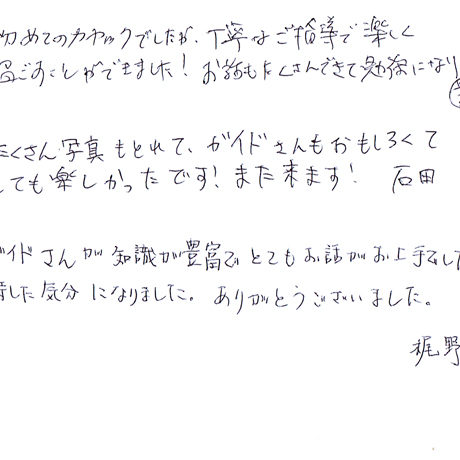 初めてのカヤックでしたが、丁寧なご指導で楽しく
過ごすことができました！ お話もたくさんできて勉強になり
たくさん写真もとれて、ガイドさんもおもしろくて
ても楽しかったです！また来ます！ 石田
ガイドさんが知識が豊富でとてもお話がお上手でした
した気分になりました。ありがとうございました。
梶野